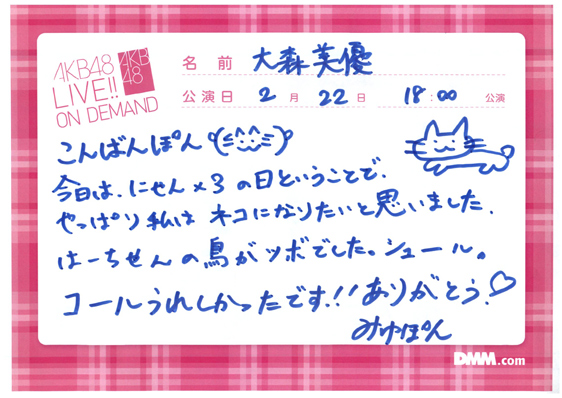 AKB48
LIVE!!
ON DEMAND
AKB
48
名前 大森美優
公演日 2月22日 18:00 公演
こんばんぽん
今日は、にゃん×3の日ということで、
やっぱり私はネコになりたいと思いました。
はーちゃんの鳥がツボでした。シュール。
コールうれしかったです!!ありがとう!♡
みゆぽん
DMM.com